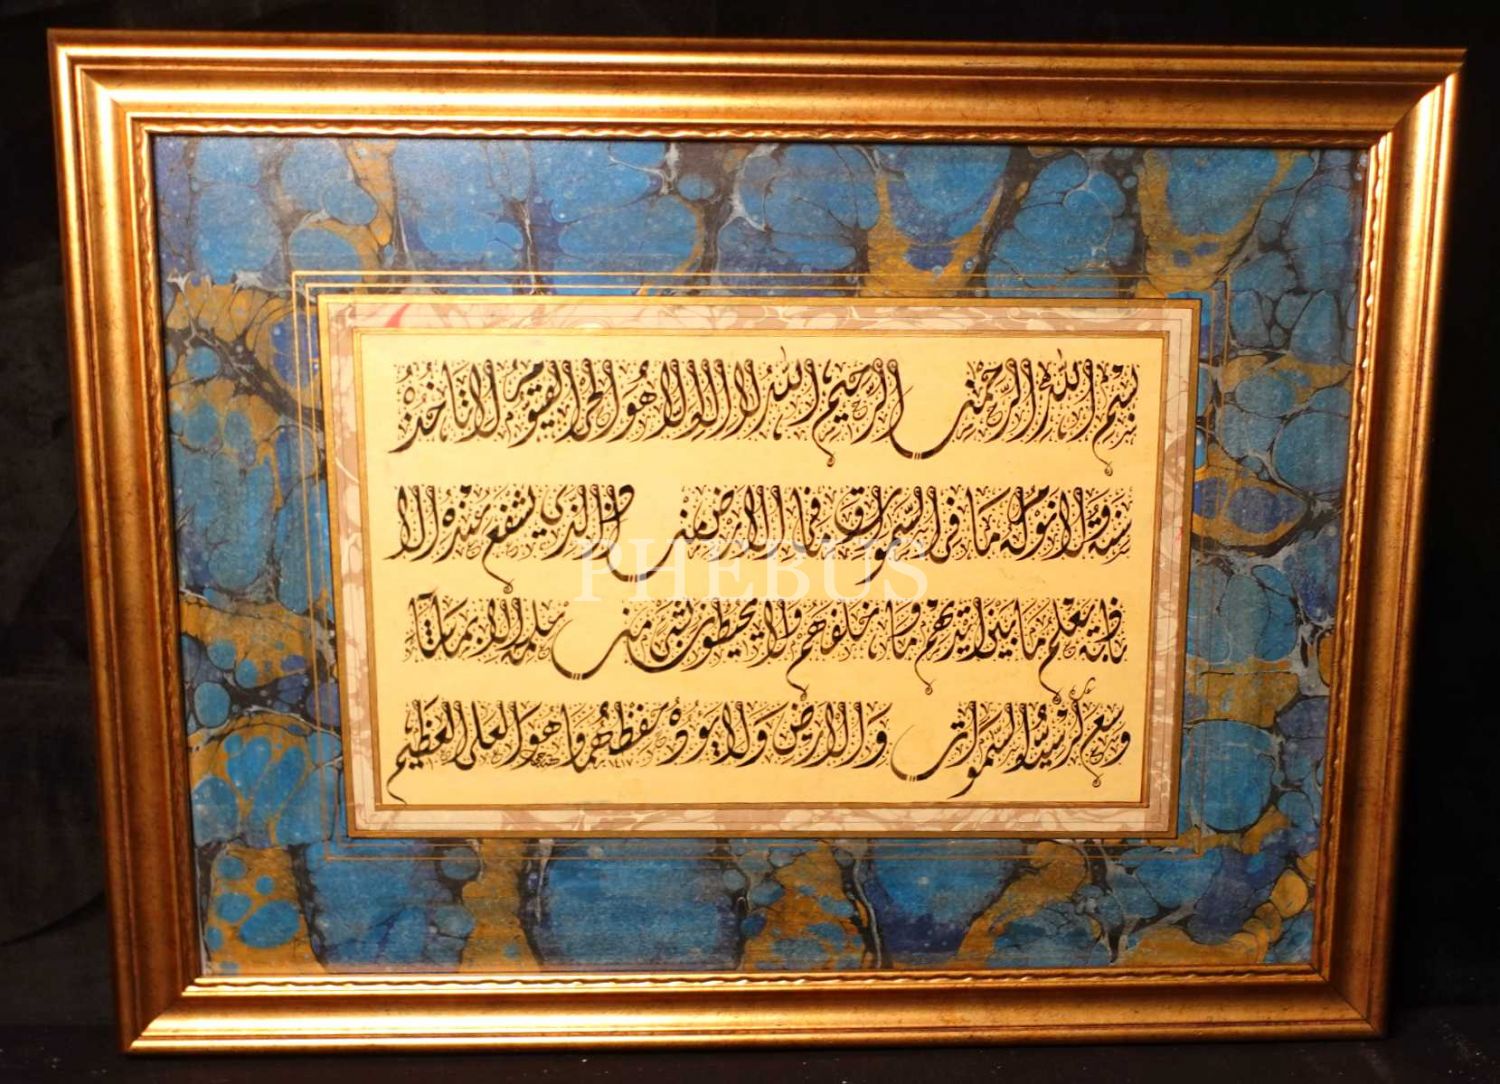 بسم الله الرحمن الرحيم الله لا اله الا هو الحي القيوم لا تاخذه
سنة ولا نوم له ما في السموات وما في الارض من ذا الذي يشفع عنده الا
باذنه يعلم ما بين ايديهم وما خلفهم ولا يحيطون بشئ من علمه الا بما شاء
وسع كرسيه السموات والارض ولا يوده حفظهما وهو العلي العظيم
١٤١٧
PHEBUS